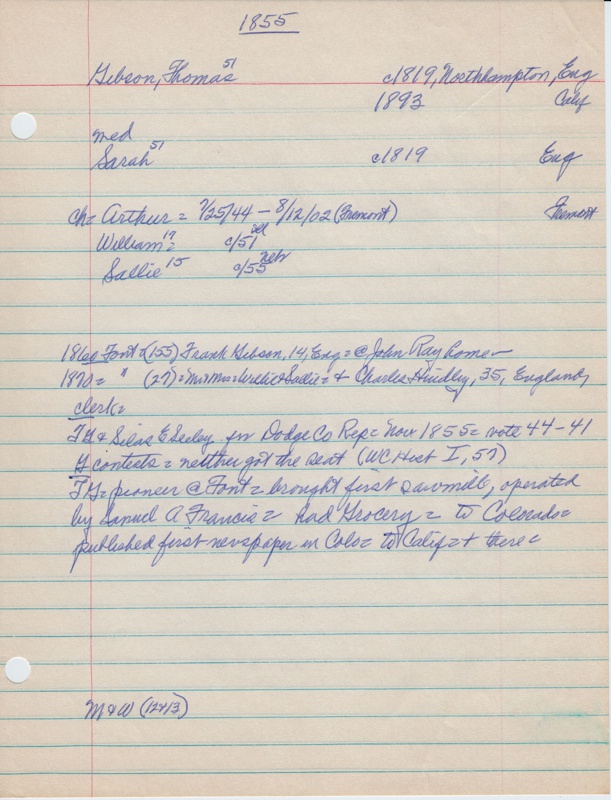 1855
Gibson, Thomas 51 c1819, Northampton, Eng
1893 Calif
med
Sarah 51 c1819 Eng
ch= Arthur = 7/25/44 - 8/12/02 (Fremont) Fremont
William 19 = c/51 Ill
Sallie 15 c/55 Neb
1860 Font = (155) Frank Gibson, 14, Eng = @ John Ray home -
1870 = " (27) = Mr + Mrs = + Sallie = + Charles Hindley, 35, England,
clerk =
TG & Silas E Seeley for Dodge Co Rep = Nov 1855 = vote 44 - 41
G contests = neither got the seat (WC Hist I, 57)
TG = pioneer @ Font = brought first sawmill, operated
by Samuel A Francis = had Grocery = to Colorado =
published first newspaper in Colo = to Calif = + there =
M & W (12+13)